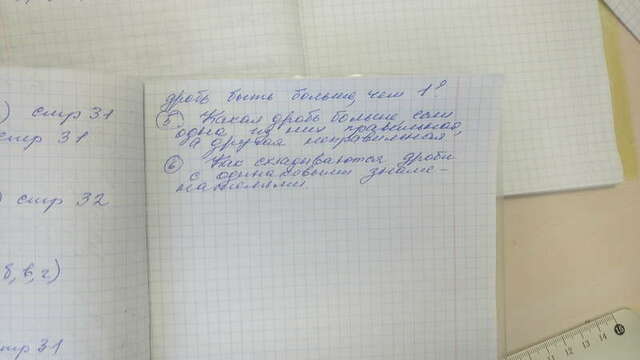 ) стр 31
стр 31
) стр 32
б, в, г)
стр 31
дробь быть больше, чем 1?
5) Какая дробь больше если
одна из них правильная,
а другая неправильная
6) Как складываются дроби
с одинаковыми знаме-
нателями.
11 12 13 14